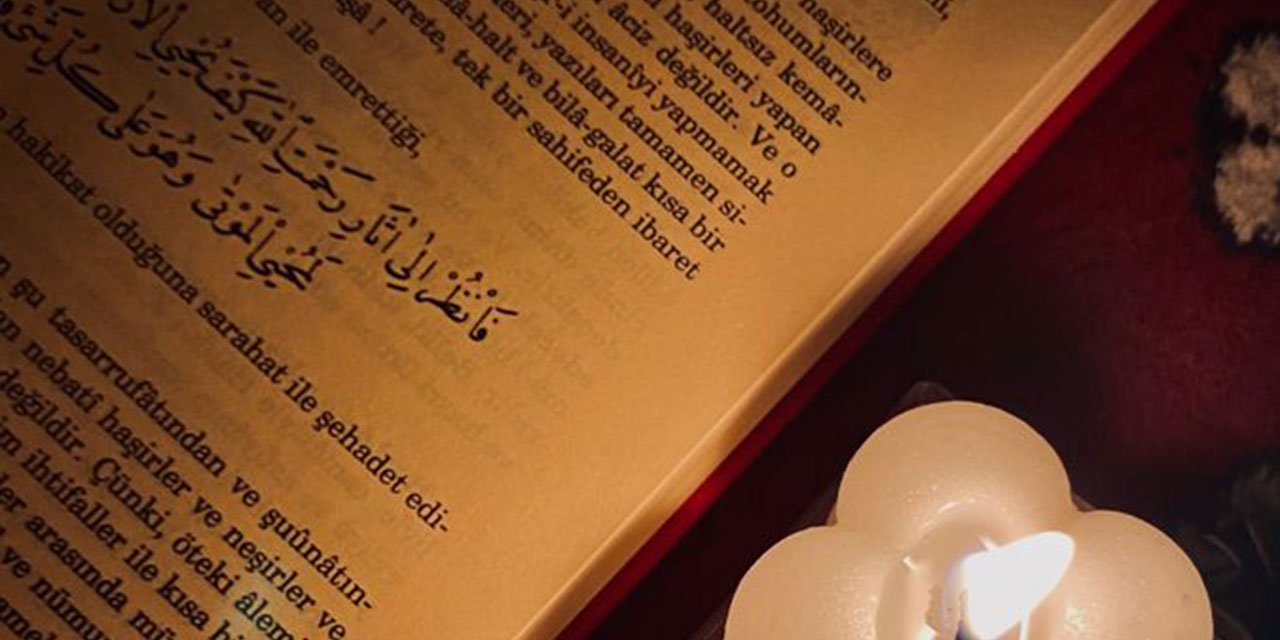 ohumların-
haltsız kemâ-
haşirleri yapan
âciz değildir. Ve o
-i insanîyi yapmamak
eri, yazıları tamamen si-
â-halt ve bilâ-galat kısa bir
rete, tek bir sahifeden ibaret
şâ !
an ile emrettiği,
فَانْظُرْ اِلٰٓى اٰثَارِ رَحْمَتِ اللّٰهِ كَيْفَ يُحْيِى
لَمُحْيِى الْمَوْتٰى وَهُوَ عَلٰى كُلِّ
hakikat olduğuna sarahat ile şehadet edi-
şu tasarrufâtından ve şuûnâtın-
an nebatî haşirler ve neşirler ve
değildir. Çünki, öteki âlem
im ihtifaller ile kısa
ler arasında
ve